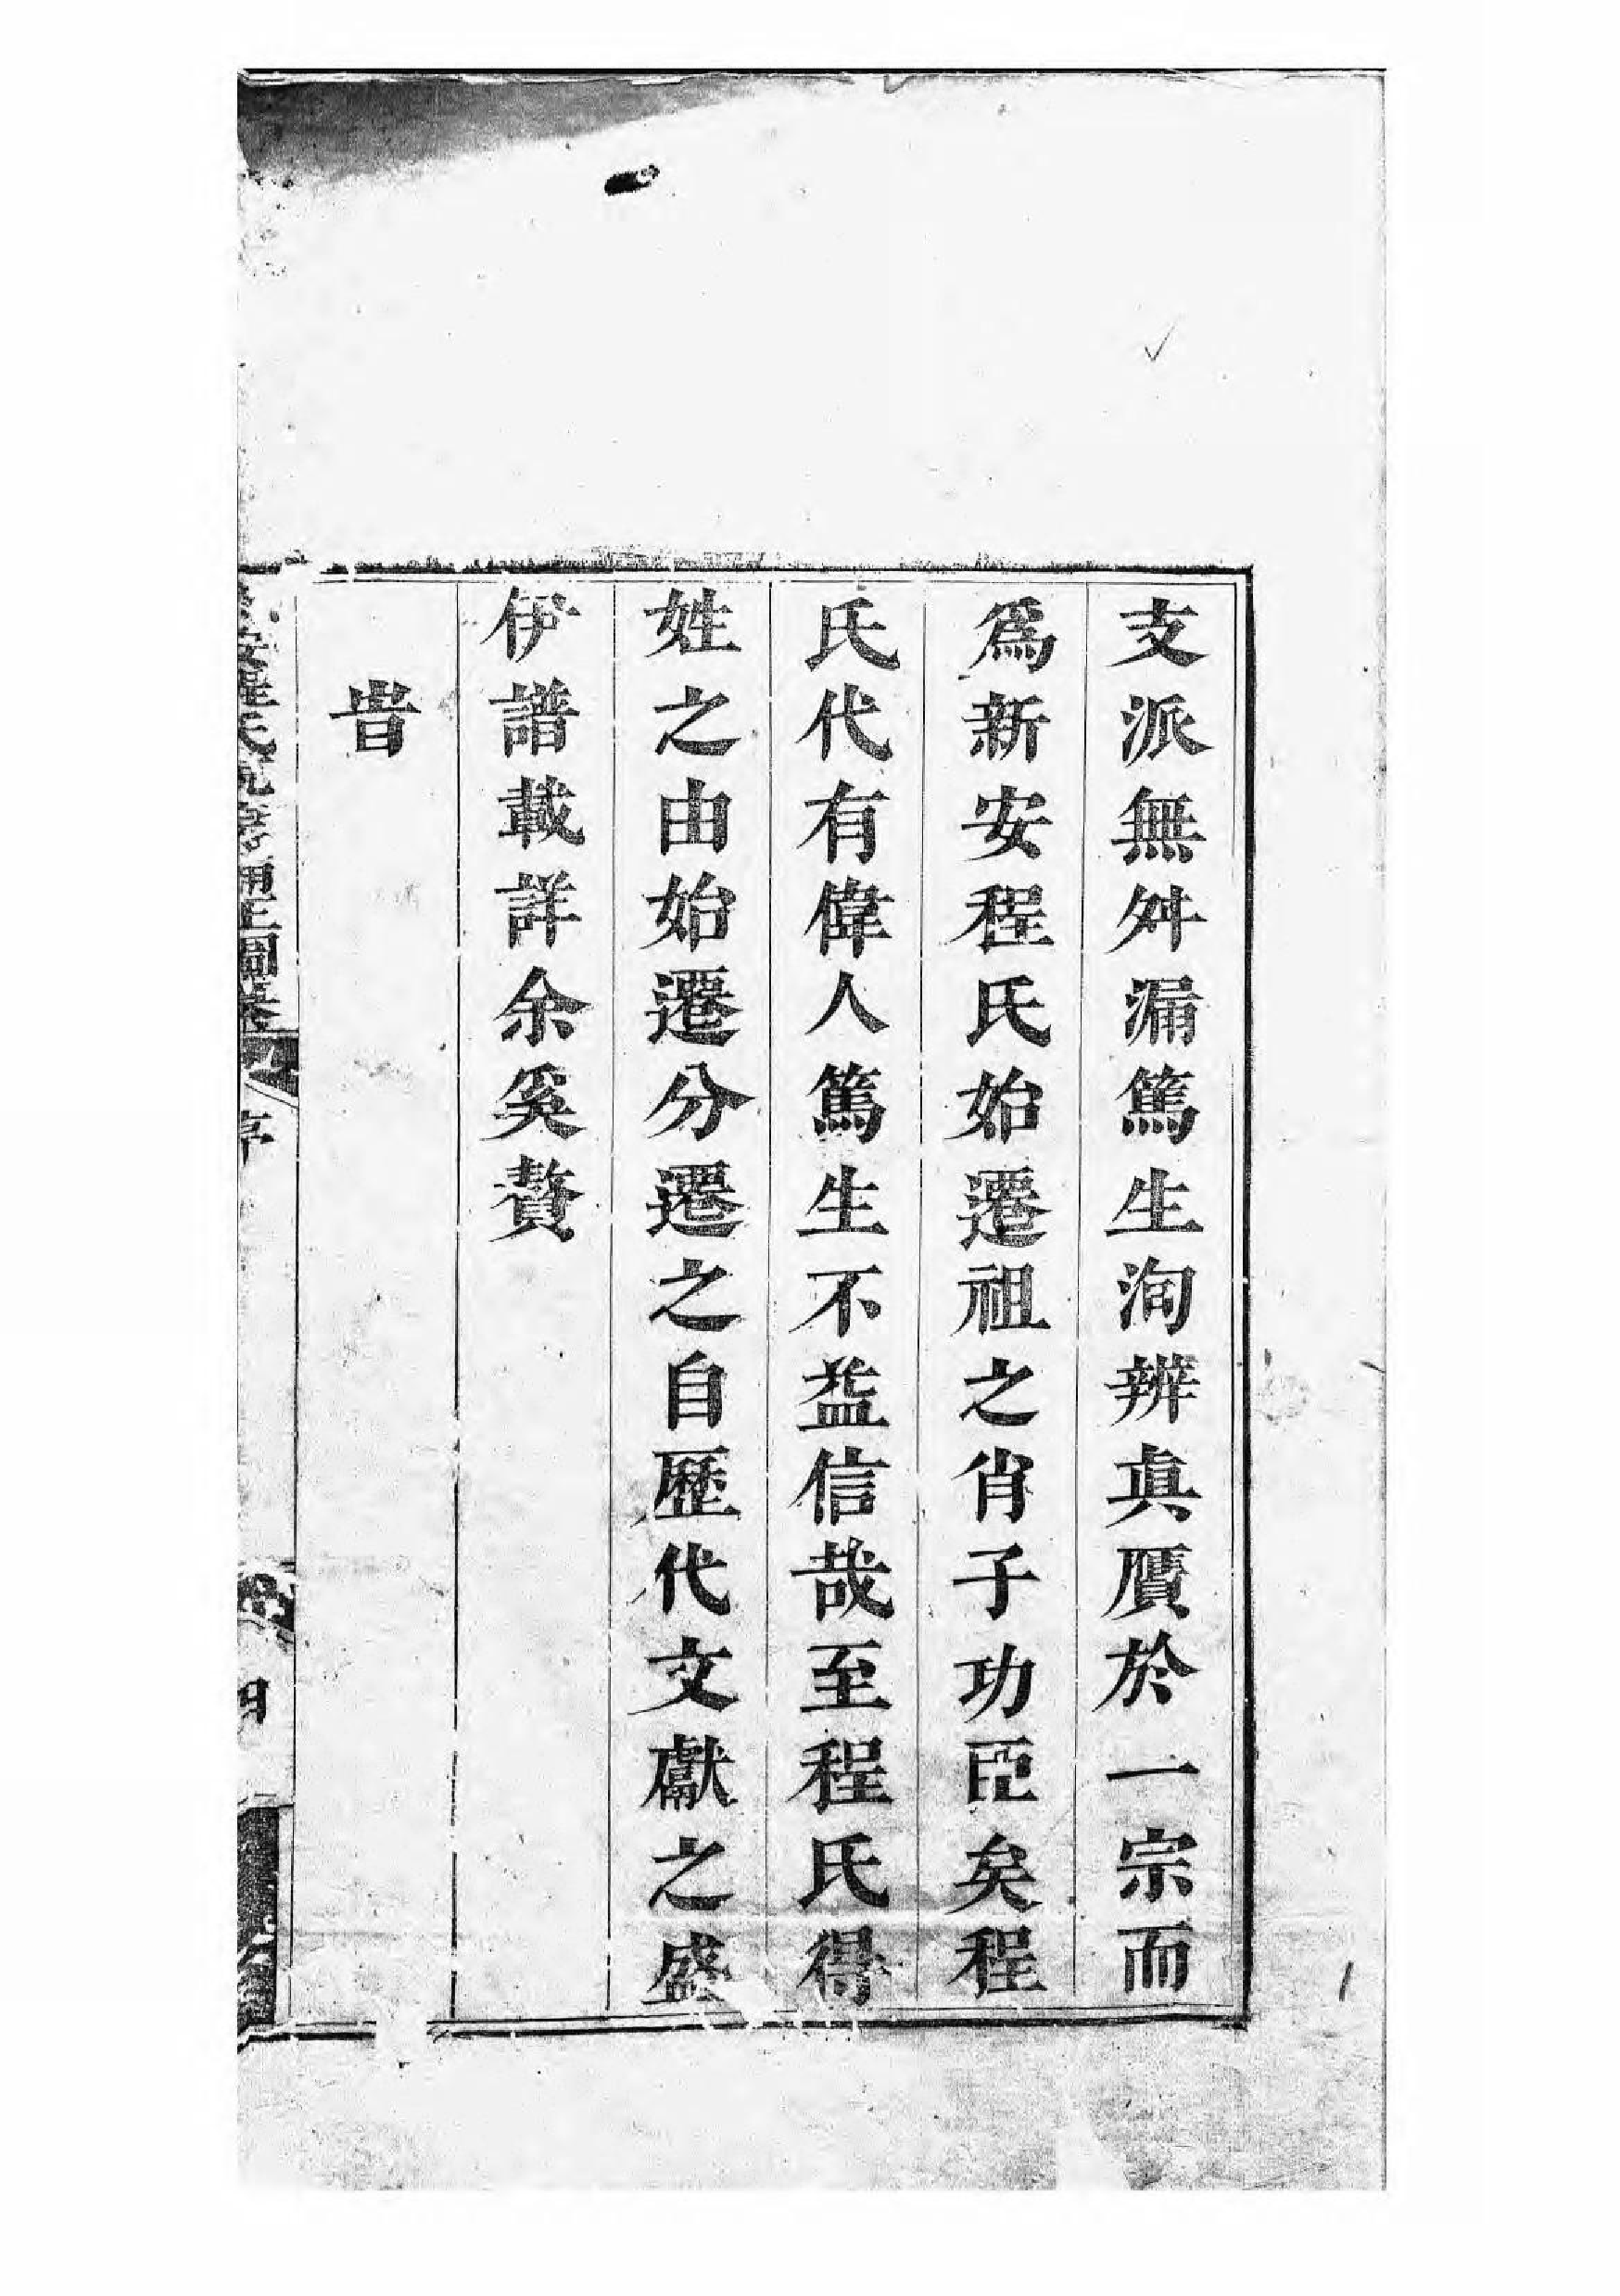 支派無舛漏篤生洵辨真贋於一宗而
爲新安程氏始遷祖之肖子功臣矣程
氏代有偉人篤生不益信哉至程氏得
姓之由始遷分遷之自歷代文獻之盛
伊譜載詳余奚贅
旹
安程氏統
圖
序
四